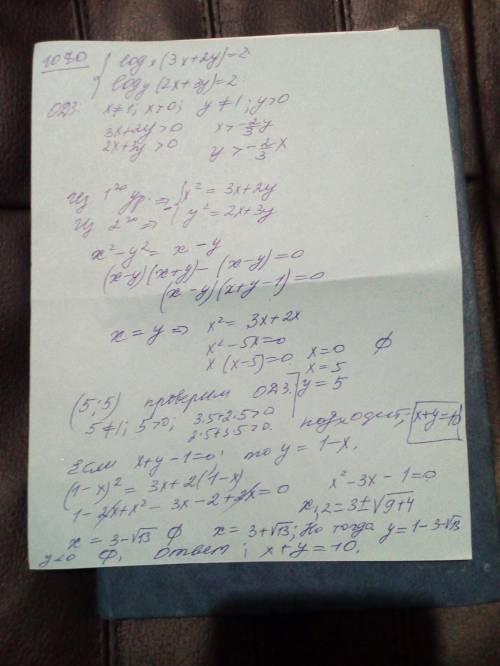 1080 { log x (3x+2y)=2
log y (2x+3y)=2
ОДЗ. x≠1; x>0; y≠1; y>0
3x+2y>0 x>-2/3y
2x+3y>0 y>-2/3x
Из 1го ур. => { x² = 3x+2y
Из 2го => y² = 2x+3y
x²-y² = x-y
(x-y)(x+y)-(x-y)=0
(x-y)(x+y-1)=0
x=y => x² = 3x+2x
x²-5x=0
x(x-5)=0 x=0 ∅
x=5
(5;5) проверим ОДЗ. y=5
5≠1; 5>0; 3·5+2·5>0
2·5+3·5>0. подходит, x+y=10
Если x+y-1=0, то y=1-x.
(1-x)² = 3x+2(1-x) x²-3x-1=0
1-2x+x²-3x-2+2x=0 x1,2=3±√9+4
x=3-√13 ∅ x=3+√13; Но тогда y=1-3-√13
y<0 ∅. Ответ: x+y=10.